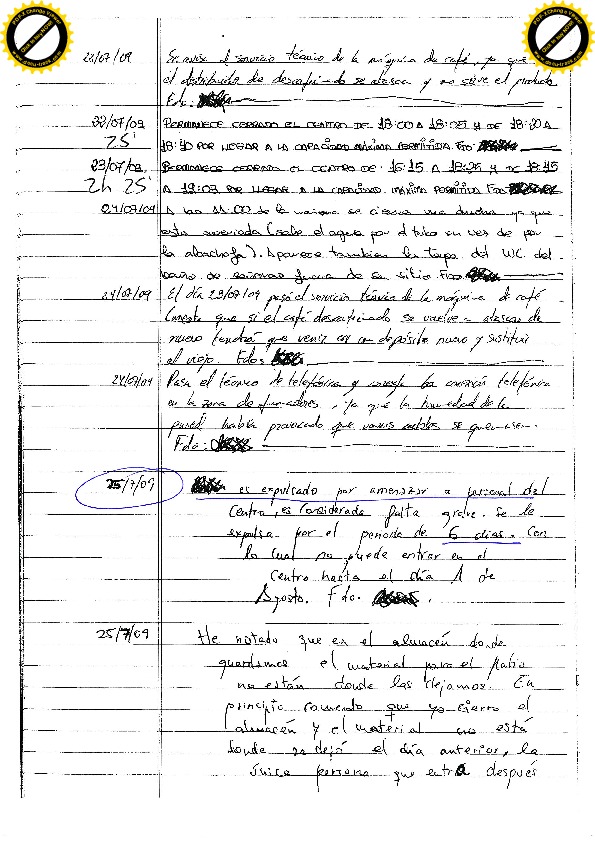 22/07/09 Se avisa al servicio técnico de la máquina de café, ya que
el distribuidor de descafeinado se atasca y no sirve el producto.
Fdo:
22/07/09 PERMANECE CERRADO EL CENTRO DE 18:00 A 18:05 Y DE 18:20 A
25' 18:40 POR LLEGAR A LA CAPACIDAD MÁXIMA PERMITIDA FDO:
23/07/09 PERMANECE CERRADO EL CENTRO DE 16:15 A 18:25 Y DE 18:45
2h 25' A 19:03 POR LLEGAR A LA CAPACIDAD MÁXIMA PERMITIDA FDO:
24/07/09 A las 11:00 de la mañana se cierra una ducha, ya que
está averiada (sale el agua por el tubo en vez de por
la alcachofa). Aparece también la tapa del WC del
baño de señoras fuera de su sitio Fdo:
24/07/09 El día 23/07/09 pasó el servicio técnico de la máquina de café
que si el café descafeinado se vuelve a atascar de
nuevo tendrá que venir con un depósito nuevo y sustituir
el viejo. Fdo:
24/07/09 Pasa el técnico de telefónica y arregla la conexión telefónica
en la zona de fumadores, ya que la humedad de la
pared había provocado que varios cables se
Fdo:
25/7/09 es expulsado por amenazar a personal del
Centro, es considerada falta grave. Se le
expulsa por el periodo de 6 días. Con
lo cual no puede entrar en el
Centro hasta el día 1 de
Agosto. Fdo.
25/7/09 He notado que en el almacén donde
guardamos el material para el patio
no están donde las dejamos. En
principio comento que yo cierro el
almacén y el material no está
donde se dejó el día anterior, la
única persona que entra después